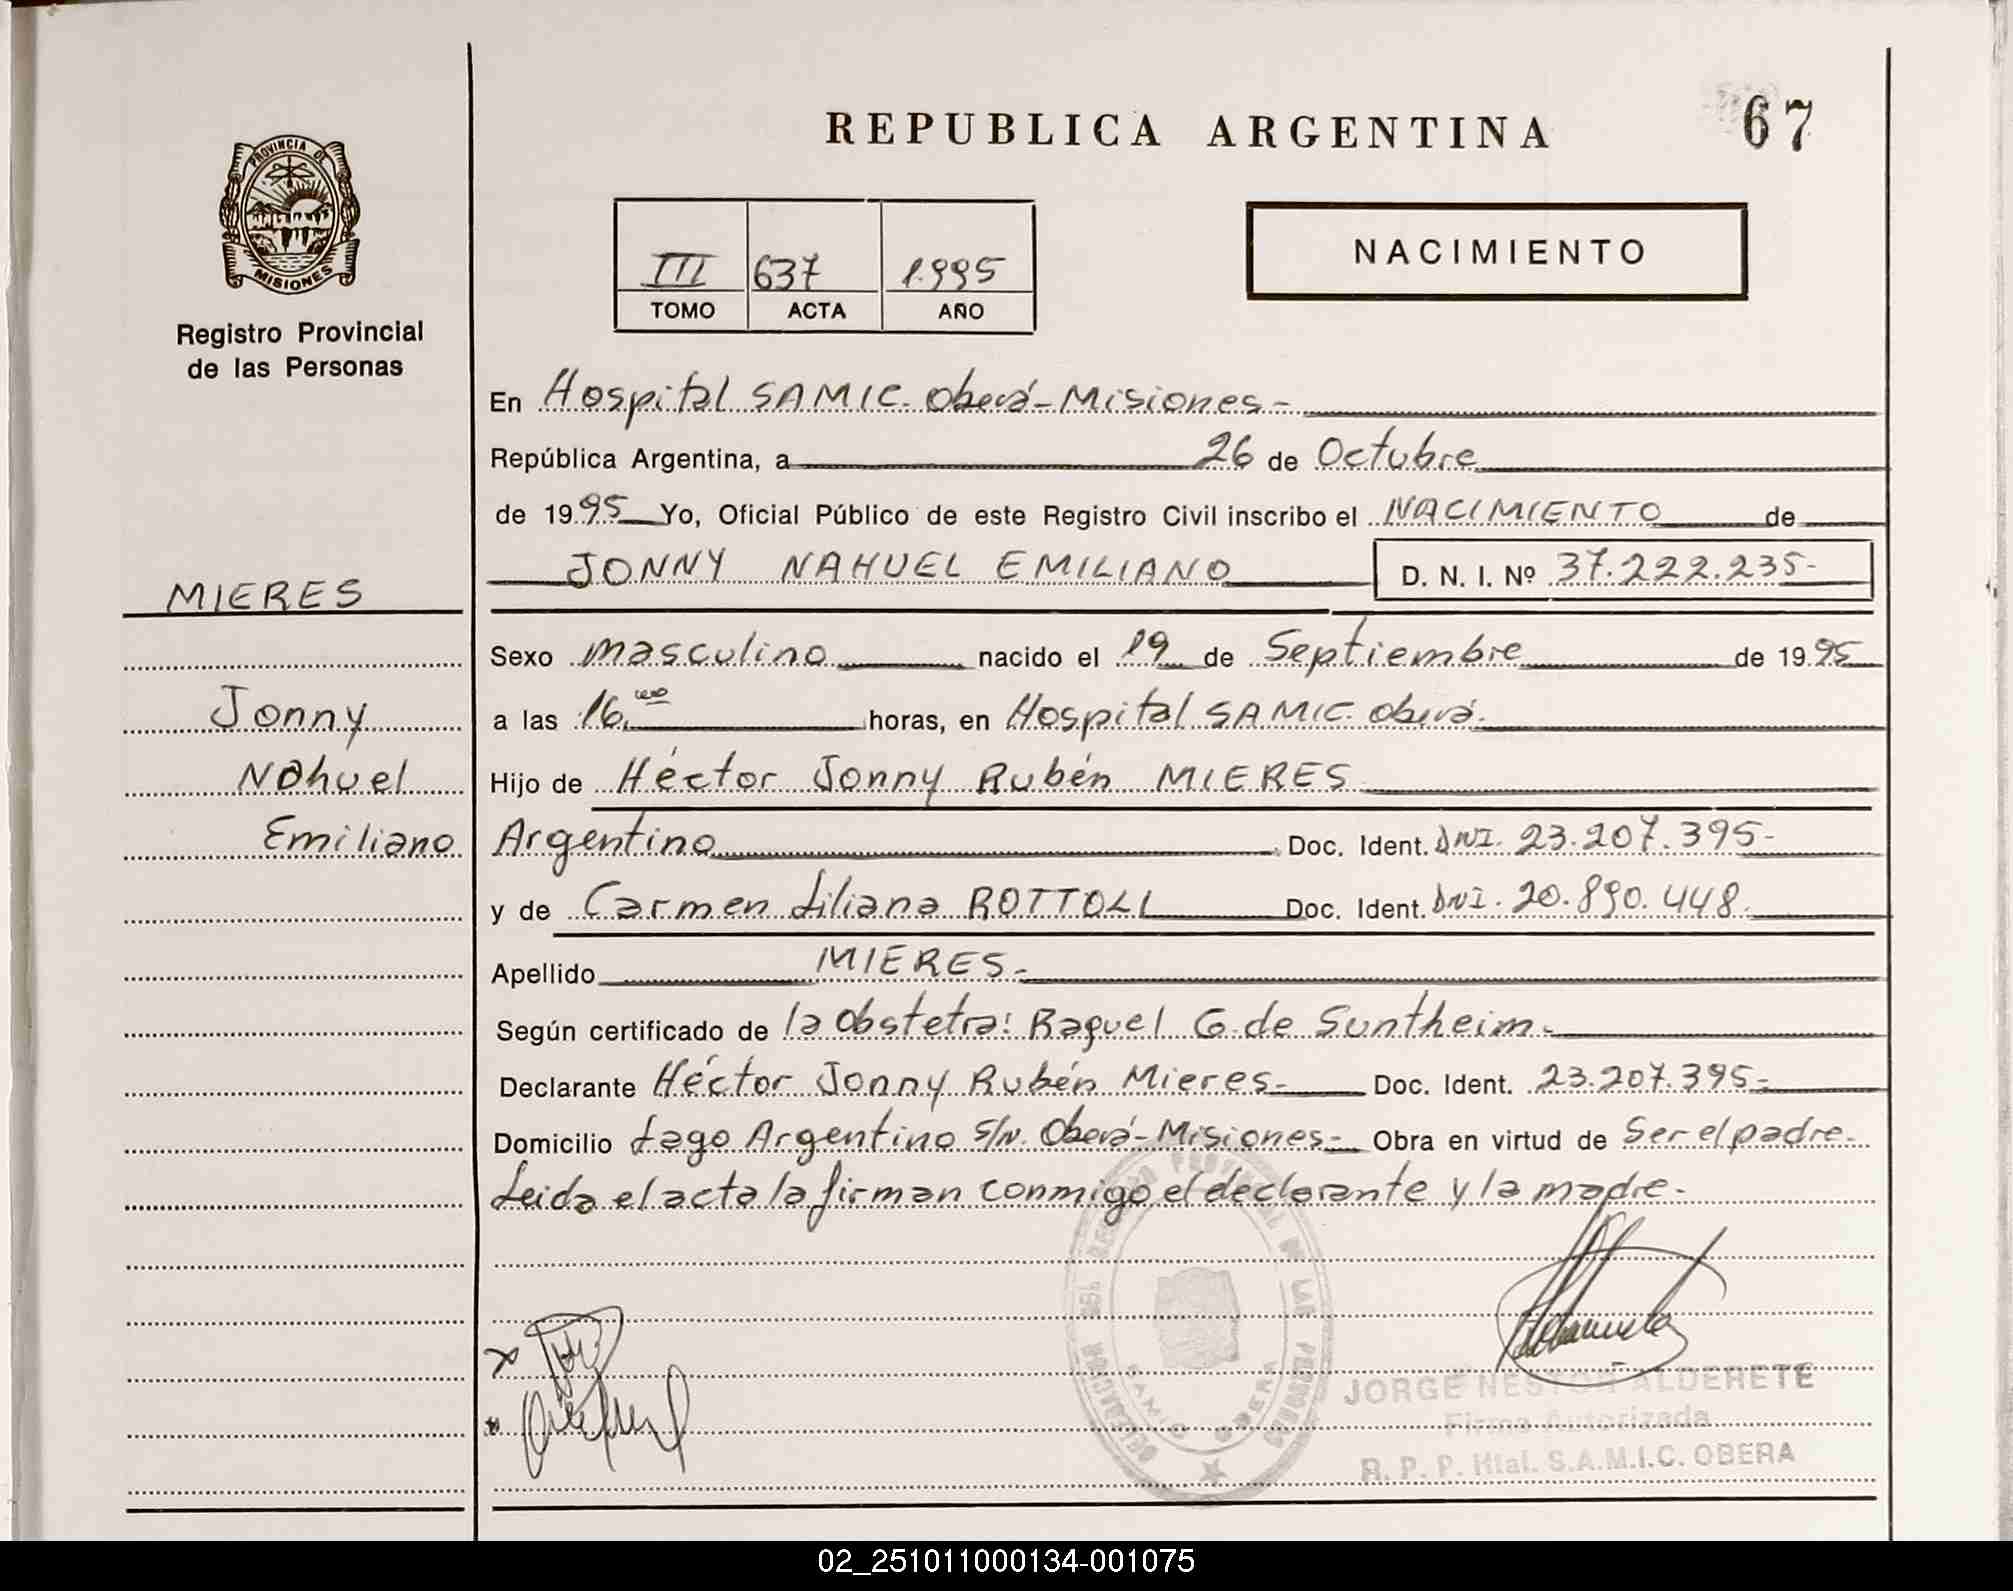 REPUBLICA ARGENTINA
67
PROVINCIA DE
MISIONES
Registro Provincial
de las Personas
III 637 1.995
TOMO ACTA AÑO
NACIMIENTO
En Hospital SAMIC. Oberá-Misiones-
República Argentina, a 26 de Octubre
de 1995 Yo, Oficial Público de este Registro Civil inscribo el NACIMIENTO de
JONNY NAHUEL EMILIANO D. N. I. Nº 37.222.235-
MIERES
Jonny
Nahuel
Emiliano
Sexo masculino nacido el 19 de Septiembre de 1995
a las 16. horas, en Hospital SAMIC. Oberá.
Hijo de Héctor Jonny Rubén MIERES
Argentino Doc. Ident. DNI. 23.207.395-
y de Carmen Liliana ROTTOLI Doc. Ident. DNI. 20.890.448.
Apellido MIERES.-
Según certificado de la obstetra: Raquel G. de Suntheim.-
Declarante Héctor Jonny Rubén Mieres- Doc. Ident. 23.207.395-
Domicilio Lago Argentino S/N. Oberá-Misiones- Obra en virtud de Ser el padre.-
Leida el acta la firman conmigo el declarante y la madre.-
JORGE NESTOR ALDERETE
Firma Autorizada
R. P. P. Htal. S.A.M.I.C. OBERA
DELEGACION DEL REGISTRO PROVINCIAL DE LAS PERSONAS
SAMIC OBERA
02_251011000134-001075